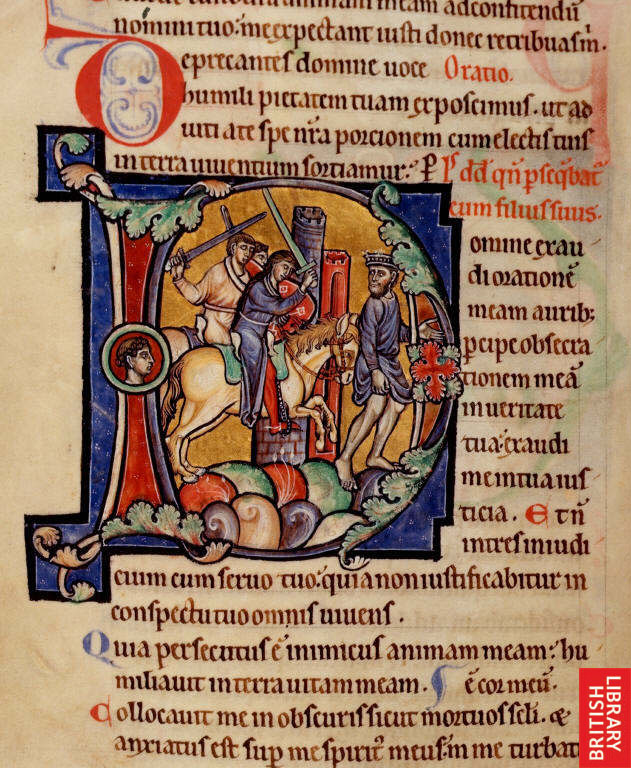 nomini tuo: me expectant iusti donec retribuas m̄.
Deprecantes domine uoce Oratio.
humili pietatem tuam exposcimus. ut ad
uitiate spe nr̄a porcionem cum electis tuis
in terra uiuentium sortiamur: P Pſ dd̄ qn̄ pseq̄bat̄
eum filius suus.
Domine exau
di orationē
meam aurib;
percipe obsecra
tionem meā
in ueritate
tua: exaudi
me in tua ius
ticia. Et n̄
intres in iudi
cium cum seruo tuo: quia non iustificabitur in
conspectu tuo omnis uiuens.
Quia persecutus ē inimicus animam meam: hu
miliauit in terra uitam meam. ē cor meū.
Collocauit me in obscuris sicut mortuos sc̄li. &
anxiatus est sup me spiritꝰ meus: in me turbat
BRITISH
LIBRARY